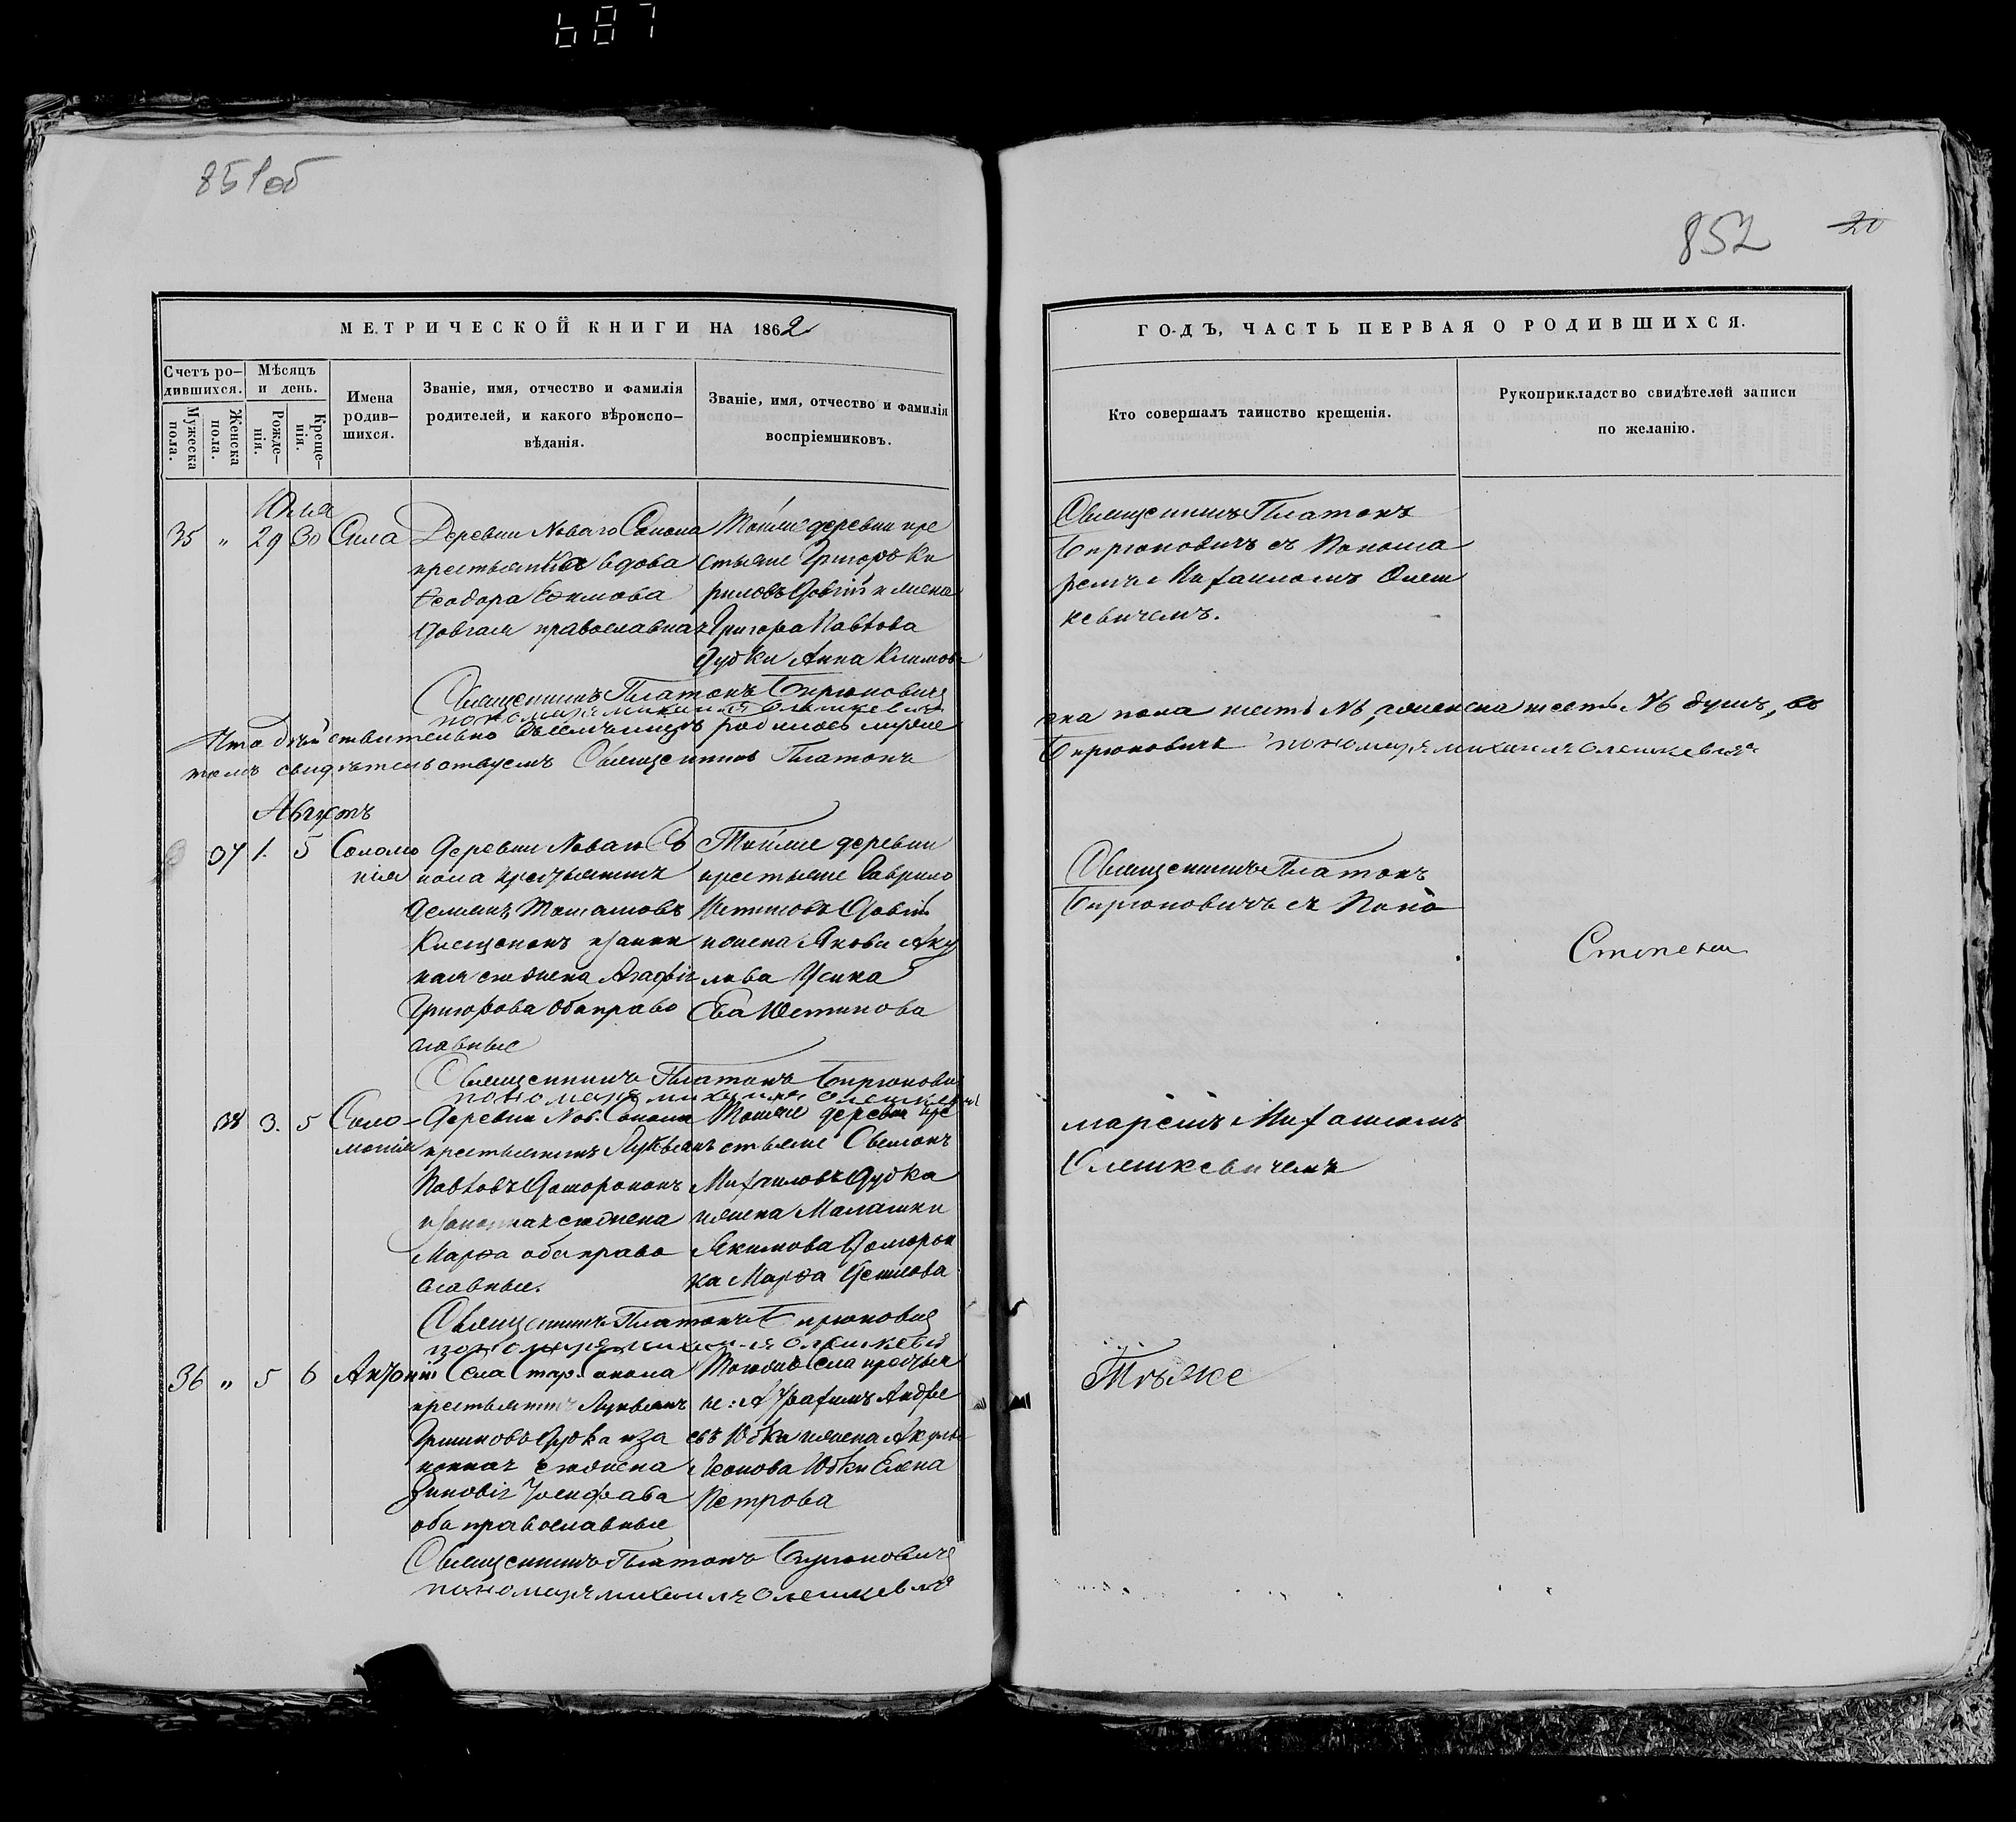 687
851об
852
20
МЕТРИЧЕСКОЙ КНИГИ НА 1862
Счетъ ро-
дившихся.
Мѣсяцъ
и день.
Мужеска
пола.
Женска
пола.
Рожде-
нія.
Креще-
нія.
Имена
родив-
шихся.
Званіе, имя, отчество и фамилія
родителей, и какого вѣроиспо-
вѣданія.
Званіе, имя, отчество и фамилія
воспріемниковъ.
ГОДЪ, ЧАСТЬ ПЕРВАЯ О РОДИВШИХСЯ.
Кто совершалъ таинство крещенія.
Рукоприкладство свидѣтелей записи
по желанію.
Юлиа
35 " 29 30 Сила
Деревни Новаго
крестьянка вдова
Ѳеодора Ефимова
Довгая православная
Тойже деревни кре
стьяне Григоръ Ки
риловъ Довгій и жена
Григора Павлова
Дудки Анна Климова
Священникъ Платонъ Бирюковичъ
съ Понома
ремъ Михаиломъ Олеш
кевичемъ.
Священникъ Платонъ Бирюковичъ
пономарь михаилъ олешкевичъ
Что дѣйствительно въ семъ мцѣ родилось муже
ска пола шесть №6, женска шесть №6 душъ, въ
томъ свидѣтельствуемъ Священникъ Платонъ
Бирюковичъ пономарь михаилъ олешкевичъ
Августъ
37 1. 5 Соломо
нія
Деревни Новаго
крестьянинъ
Демянъ Томашовъ
Клещонокъ и закон
ная его жена Агафія
Григорова оба право
славные
Тойже деревни
крестьяне Гаврило
Довгій
и жена Якова Аку
лова Усика
Ева
Священникъ Платонъ
Бирюковичъ съ Поно
Степени
Священникъ Платонъ Бирюкович
пономарь михаилъ олешкевичъ
38 3. 5 Соло-
монія
Деревни Нов.
крестьянинъ Лукьянъ
Павловъ
и законная его жена
Марѳа оба право
славные.
Тойже деревни кре
стьяне Семіонъ
Михаиловъ Дудка
и жена Малашки
Якимова
ка Марѳа
маремъ Михаиломъ
Олешкевичемъ
Священникъ Платонъ Бирюкович
пономарь михаилъ олешкевичъ
36 " 5 6 Антоній
Села Стар.
крестьянинъ Лукьянъ
Дудка и за
конная его жена
Зиновія Іосифава
оба православные
Тогоже села крестья
не: Андре
евъ Юбка и жена Акулы
Леонова Юбки Елена
Петрова
Тѣже
Священникъ Платонъ Бирюковичъ
пономарь михаилъ олешкевичъ